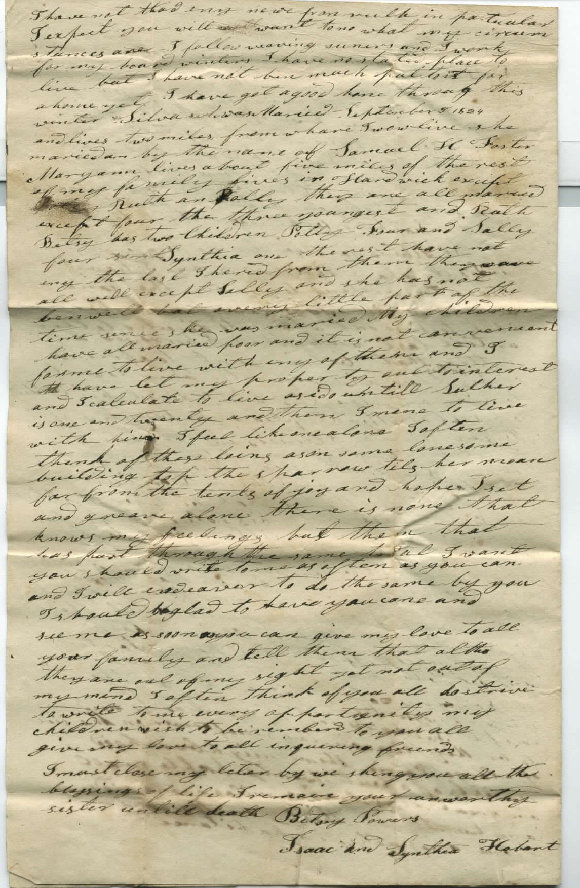 I have not had eny news from ruth in particular
I expect you will want to no what my circum
stances are I follow waving sumers and I work
for my board winters I have no stated place to
live but I have not ben much put to it for
a home yet I have got a good home threw this
winter Silva was Maried September 9 1824
and lives two miles from whare I now live she
maried a by the name of Samuel H Foster
Maryann lives about five miles of the rest
of my family lives in Hardwick except
Ruth an Polly they are all maried
except four the three youngest and Ruth
Betsy has two Children Polly Four and Sally
four Synthia one the rest have not
eny the last I herd from them they ware
all well except Sally and she has not
ben well but a very little part of the
time since she was maried My children
have all maried poor and it is not convenient
for me to live with eny of them and I
have let my property out to interest
and I calculate to live as I do untill Luther
is one and twenty and then I mene to live
with him I feel like one alone I often
think of these loins as on some lonesome
building top the sparrow tels her moan
far from the tents of joy and hope I set
and greave alone there is none that
knows my feelings but them that
has past through the same trial I want
you should write to me as often as you can
and I will endeavor to do the same by you
I should be glad to have you come and
see me as soon as you can give my love to all
your family and tell them that altho
they are out of my sight yet not out of
my mind I often think of you all do strive
to write to me every opportunity my
children wish to be rememberd to you all
give my love to all inquireing friends
I must close my leter by wishing you all the
blessings of life I remain your unworthy
sister untill death Betsy Powers
Isaac and Synthia Hobart